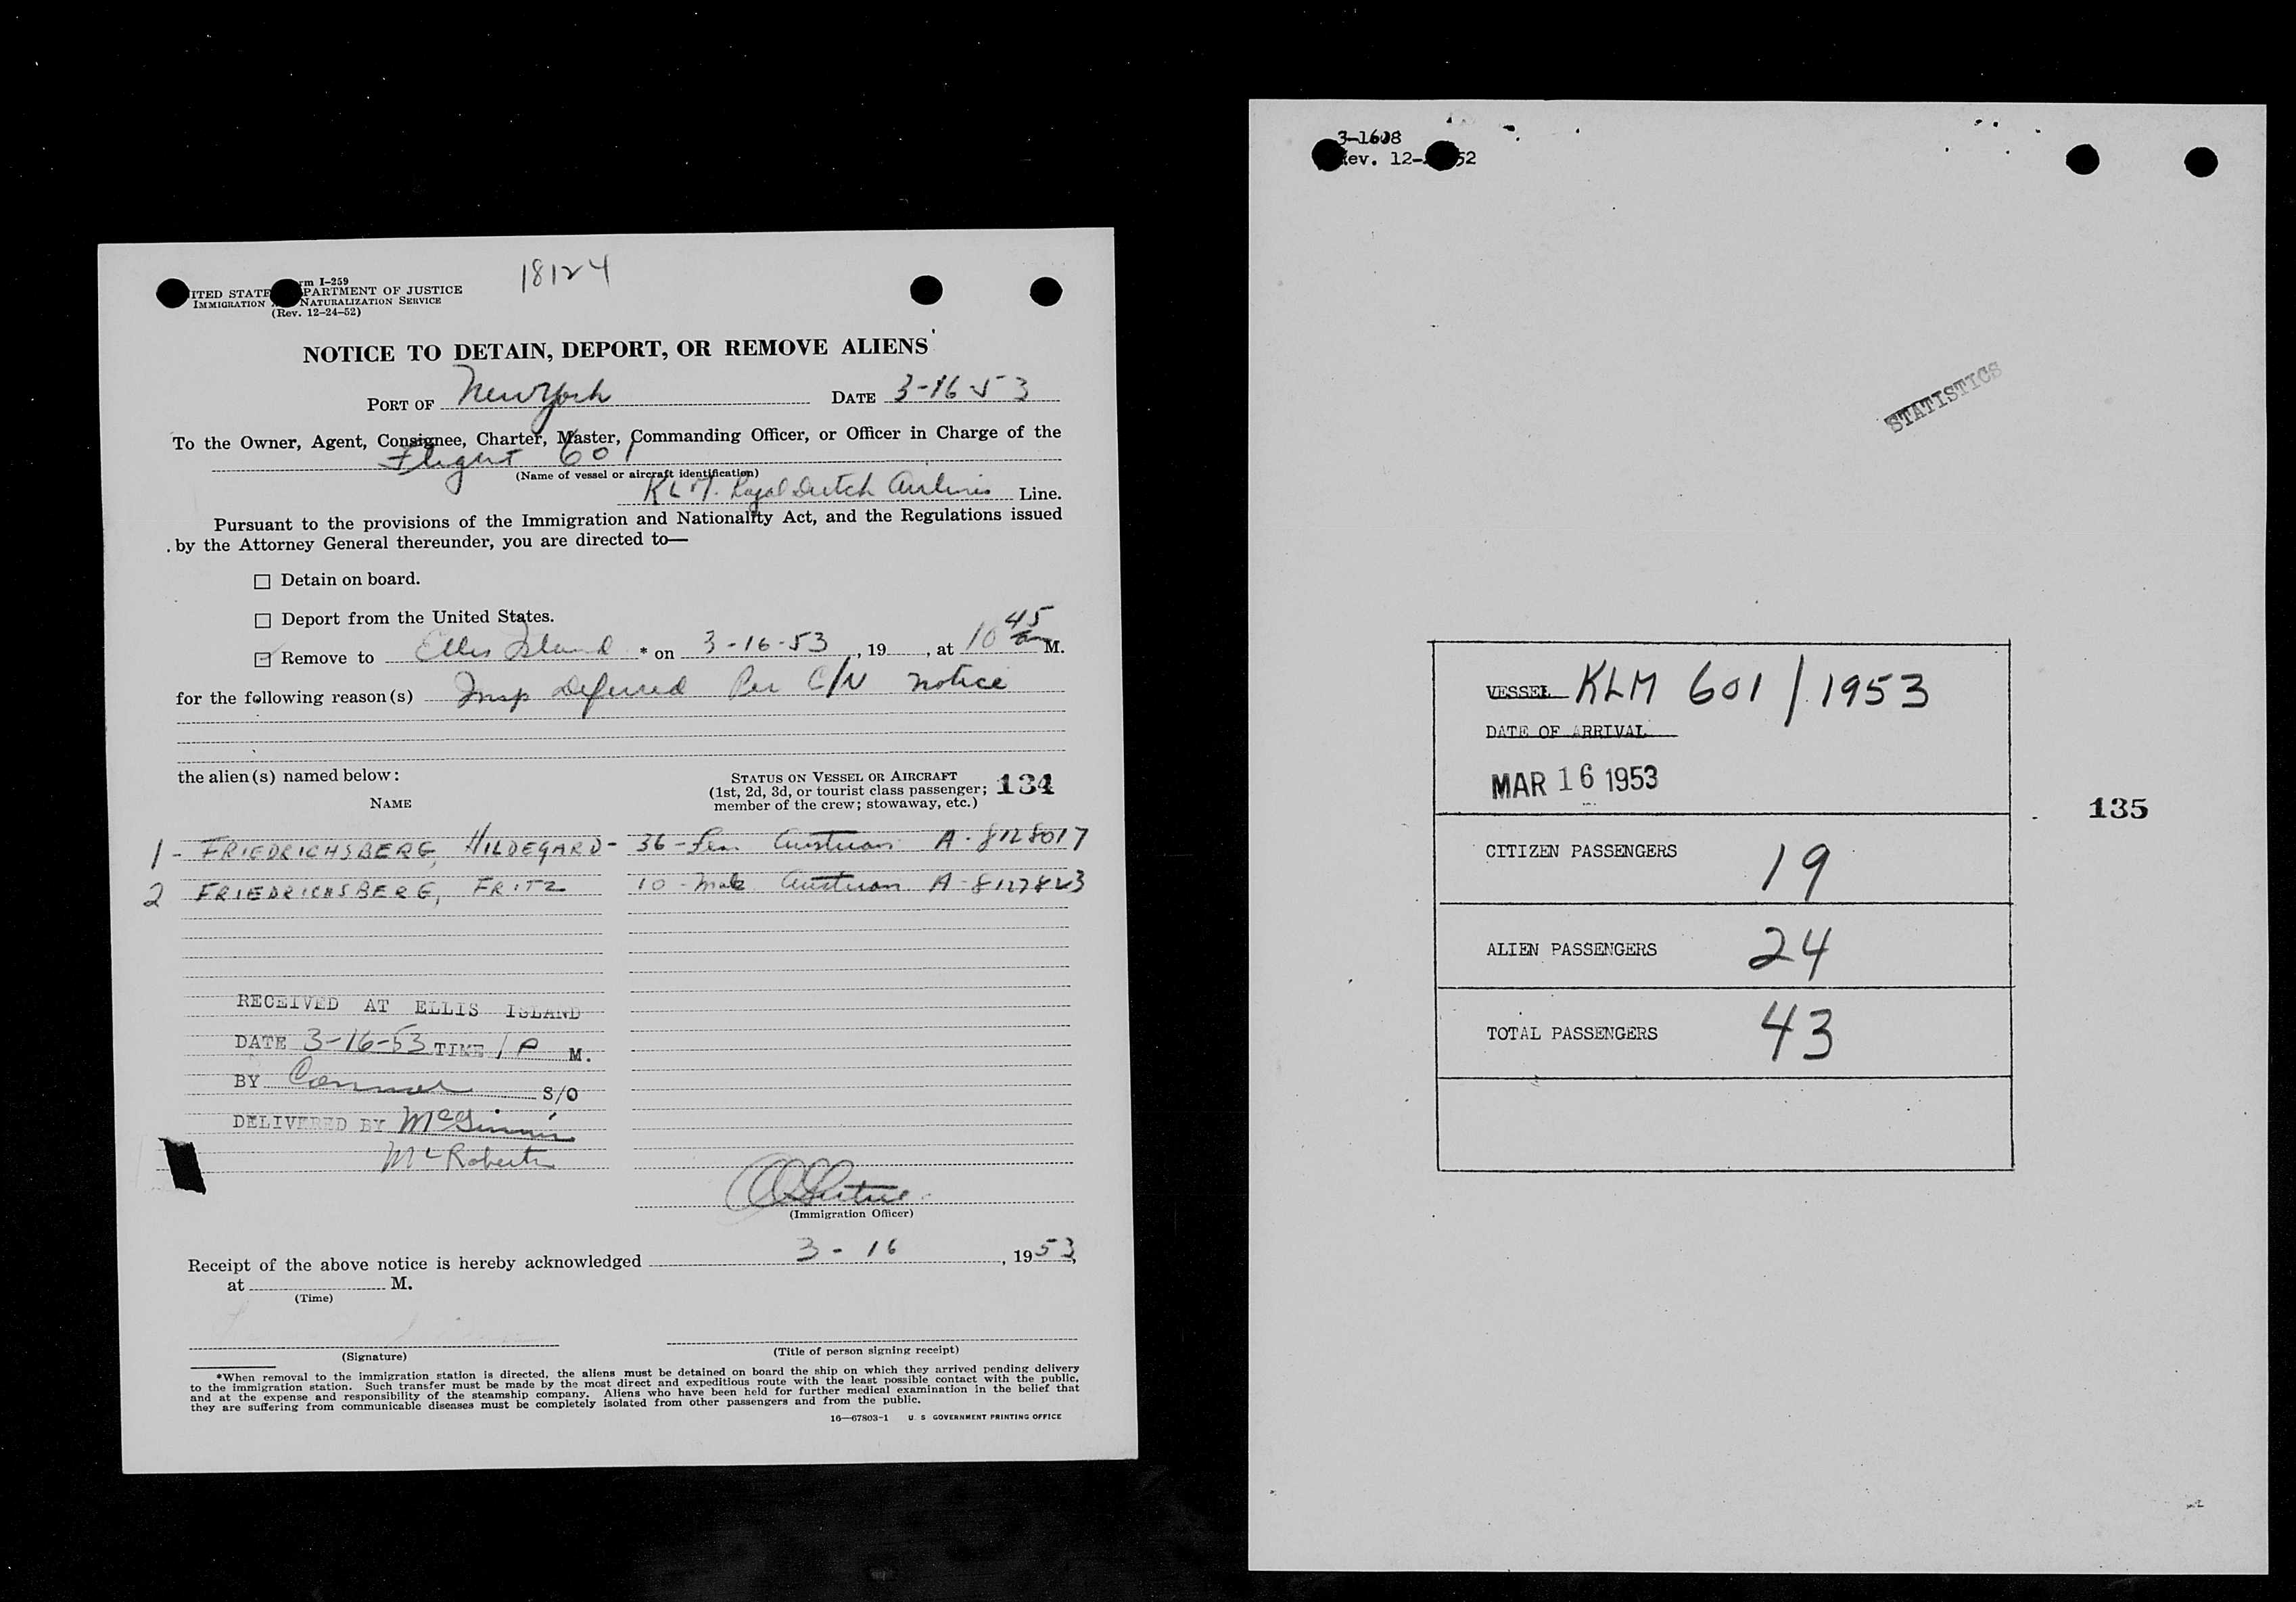 18124
rm I-259
ITED STATE PARTMENT OF JUSTICE
IMMIGRATION NATURALIZATION SERVICE
(Rev. 12-24-52)
NOTICE TO DETAIN, DEPORT, OR REMOVE ALIENS
PORT OF New York DATE 3-16-53
To the Owner, Agent, Consignee, Charter, Master, Commanding Officer, or Officer in Charge of the
Flight 601
(Name of vessel or aircraft identification)
KLM. Royal Dutch Airlines Line.
Pursuant to the provisions of the Immigration and Nationality Act, and the Regulations issued
by the Attorney General thereunder, you are directed to—
☐ Detain on board.
☐ Deport from the United States.
☑ Remove to Ellis Island * on 3-16-53, 19, at 10 45 am M.
for the following reason(s) Insp Deferred Per C/N notice
the alien(s) named below:
STATUS ON VESSEL OR AIRCRAFT
(1st, 2d, 3d, or tourist class passenger;
member of the crew; stowaway, etc.)
134
NAME
1 - FRIEDRICHSBERG, HILDEGARD - 36 - Fem Austrian A-8128017
2 FRIEDRICHSBERG, FRITZ 10 - Male Austrian A-8127823
RECEIVED AT ELLIS ISLAND
DATE 3-16-53 TIME 1 P M.
BY Connor S/O
DELIVERED BY McGinnis
McRoberts
(Immigration Officer)
Receipt of the above notice is hereby acknowledged 3 - 16, 1953,
at M.
(Time)
(Signature)
(Title of person signing receipt)
*When removal to the immigration station is directed, the aliens must be detained on board the ship on which they arrived pending delivery
to the immigration station. Such transfer must be made by the most direct and expeditious route with the least possible contact with the public,
and at the expense and responsibility of the steamship company. Aliens who have been held for further medical examination in the belief that
they are suffering from communicable diseases must be completely isolated from other passengers and from the public.
16—67803-1 U. S. GOVERNMENT PRINTING OFFICE
3-1608
ev. 12- 52
STATISTICS
VESSEL KLM 601/1953
DATE OF ARRIVAL
MAR 16 1953
135
CITIZEN PASSENGERS 19
ALIEN PASSENGERS 24
TOTAL PASSENGERS 43